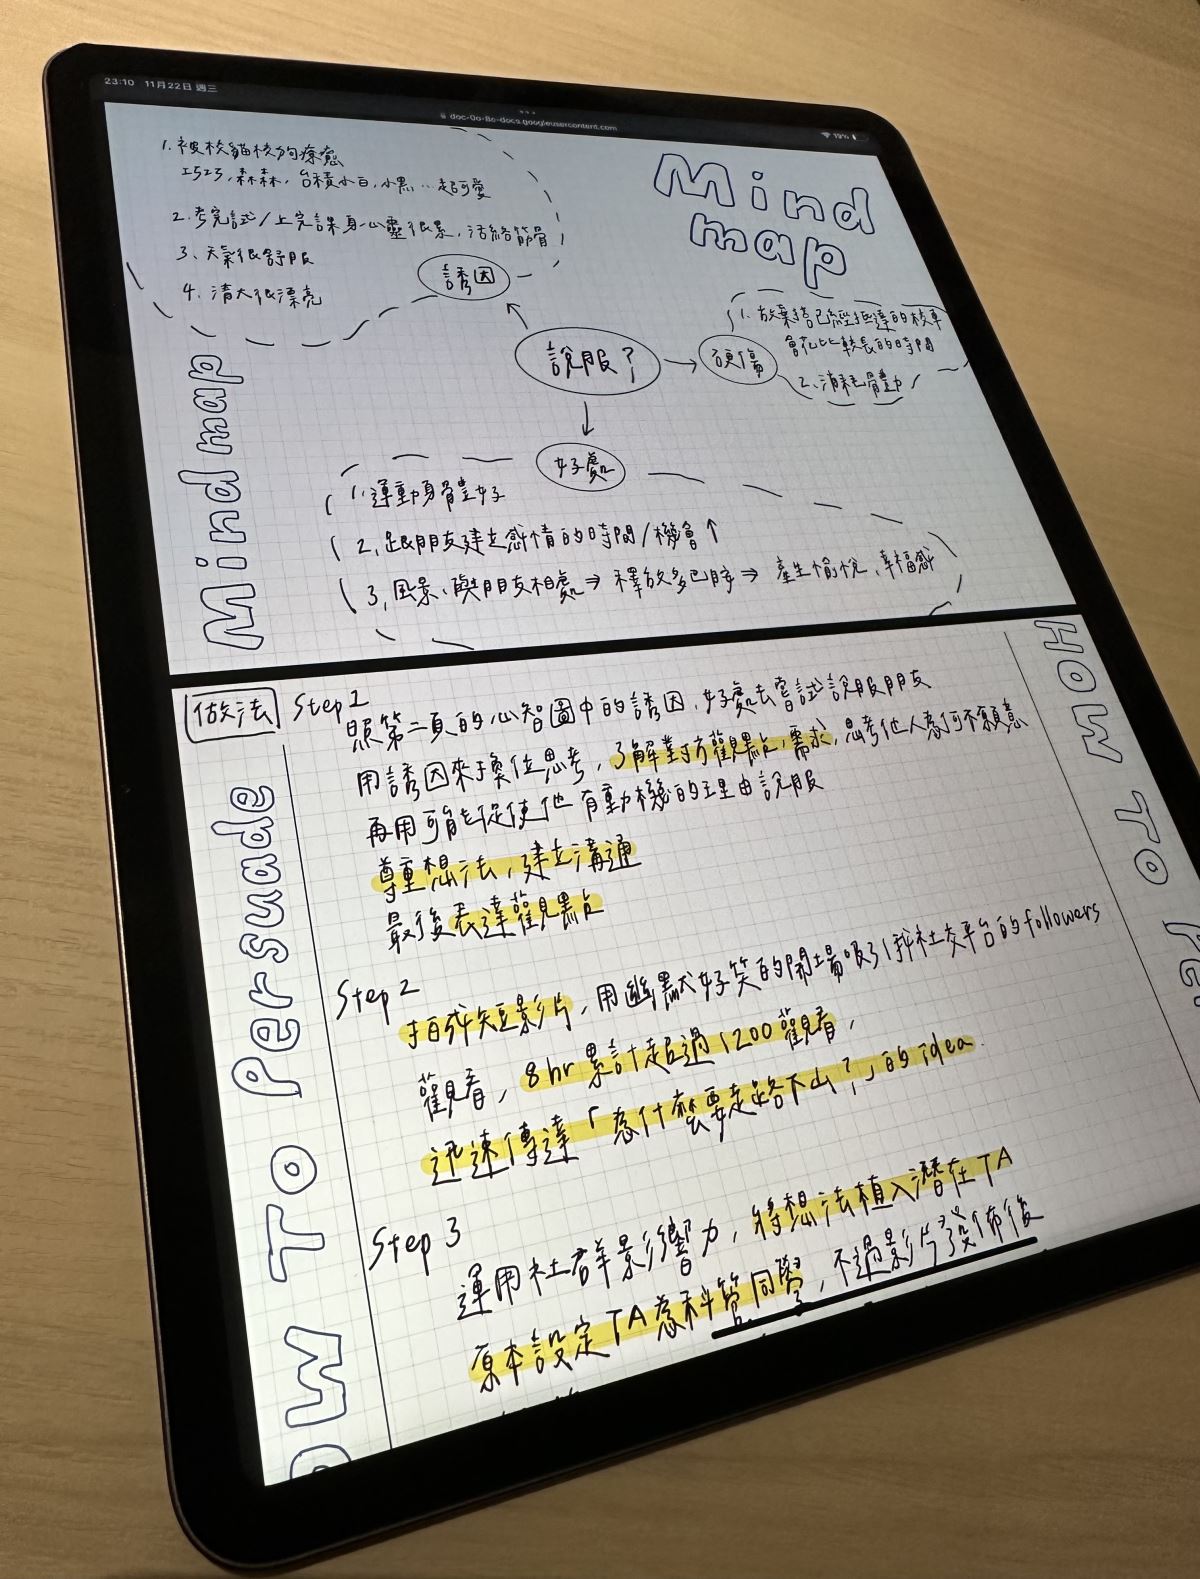 23:10 11月22日 週三
doc-0o-8c-docs.googleusercontent.com
19%
Mind
map
1. 被校貓校狗療癒
森森, 台積小白, 小黑... 超可愛
2. 考完試/上完課身心靈很累, 活絡筋骨
3. 天氣很舒服
4. 清大很漂亮
誘因
說服?
硬傷
1. 放棄搭已經抵達的校車
會花比較長的時間
2. 消耗體力
好處
1. 運動身體好
2. 跟朋友建立感情的時間/機會↑
3. 風景、與朋友相處⇒釋放多巴胺⇒產生愉悅、幸福感
Mind map
做法
Step 1
照第二頁的心智圖中的誘因、好處去嘗試說服朋友
用誘因來換位思考, 了解對方觀點、需求, 思考他人為何不願意
再用可能促使他有動機的理由說服
尊重想法, 建立溝通
最後表達觀點
Step 2
拍成短影片, 用幽默好笑的開場吸引我社交平台的followers
觀看, 8hr累計超過1200觀看,
迅速傳達「為什麼要走路下山?」的idea.
Step 3
運用社群影響力, 將想法植入潛在TA
原本設定TA為科管同學, 不過影片發佈後
HOW TO Persuade
HOW TO Pe